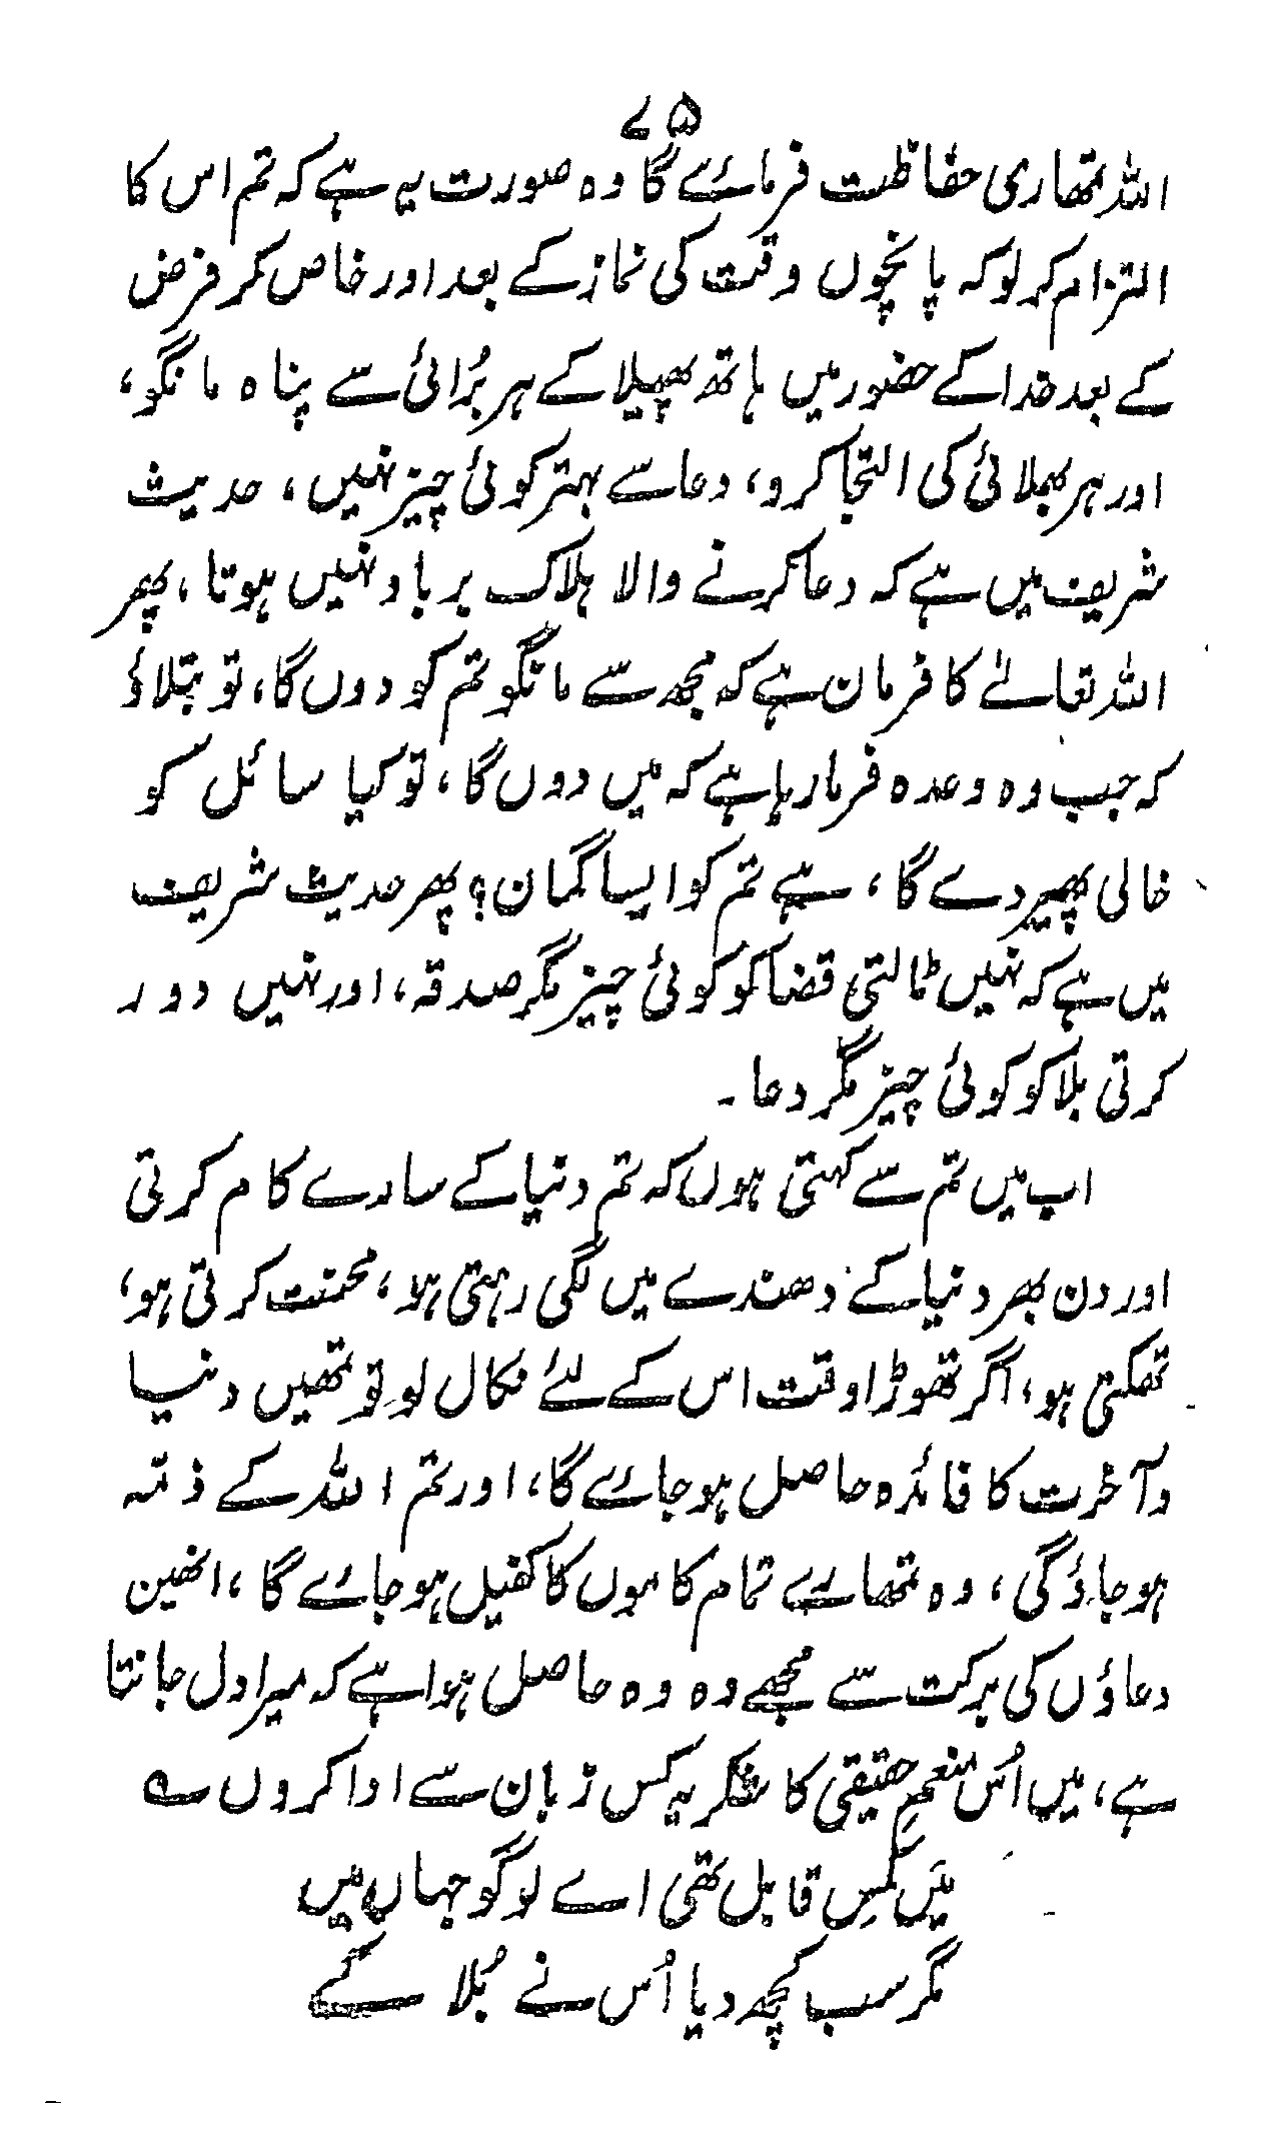 ۷۵
اللہ تمھاری حفاظت فرمائے گا وہ صورت یہ ہے کہ تم اس کا
التزام کرلو کہ پانچوں وقت کی نماز کے بعد اور خاص کر فرض
کے بعد خدا کے حضور میں ہاتھ پھیلا کے ہر بُرائی سے پناہ مانگو،
اور ہر بھلائی کی التجا کرو، دعا سے بہتر کوئی چیز نہیں، حدیث
شریف میں ہے کہ دعا کرنے والا ہلاک برباد نہیں ہوتا، پھر
اللہ تعالےٰ کا فرمان ہے کہ مجھ سے مانگو تم کو دوں گا، تو بتلاؤ
کہ جب وہ وعدہ فرما رہا ہے کہ میں دوں گا، تو کیا سائل کو
خالی پھیر دے گا، ہے تم کو ایسا گمان؟ پھر حدیث شریف
میں ہے کہ نہیں ٹالتی قضا کو کوئی چیز مگر صدقہ، اور نہیں دور
کرتی بلا کو کوئی چیز مگر دعا۔
اب میں تم سے کہتی ہوں کہ تم دنیا کے سارے کام کرتی
اور دن بھر دنیا کے دھندے میں لگی رہتی ہو، محنت کرتی ہو،
تھکتی ہو، اگر تھوڑا وقت اس کے لئے نکال لو تو تمھیں دنیا
و آخرت کا فائدہ حاصل ہو جائے گا، اور تم اللہ کے ذمّہ
ہو جاؤگی، وہ تمھارے تمام کاموں کا کفیل ہو جائے گا، انھین
دعاؤں کی برکت سے مجھے وہ وہ حاصل ہوا ہے کہ میرا دل جانتا
ہے، میں اُس منعمِ حقیقی کا شکریہ کس زبان سے ادا کروں ؎
مَیں کِس قابل تھی اے لوگو جہاں میں
مگر سب کچھ دیا اُس نے بُلا کے